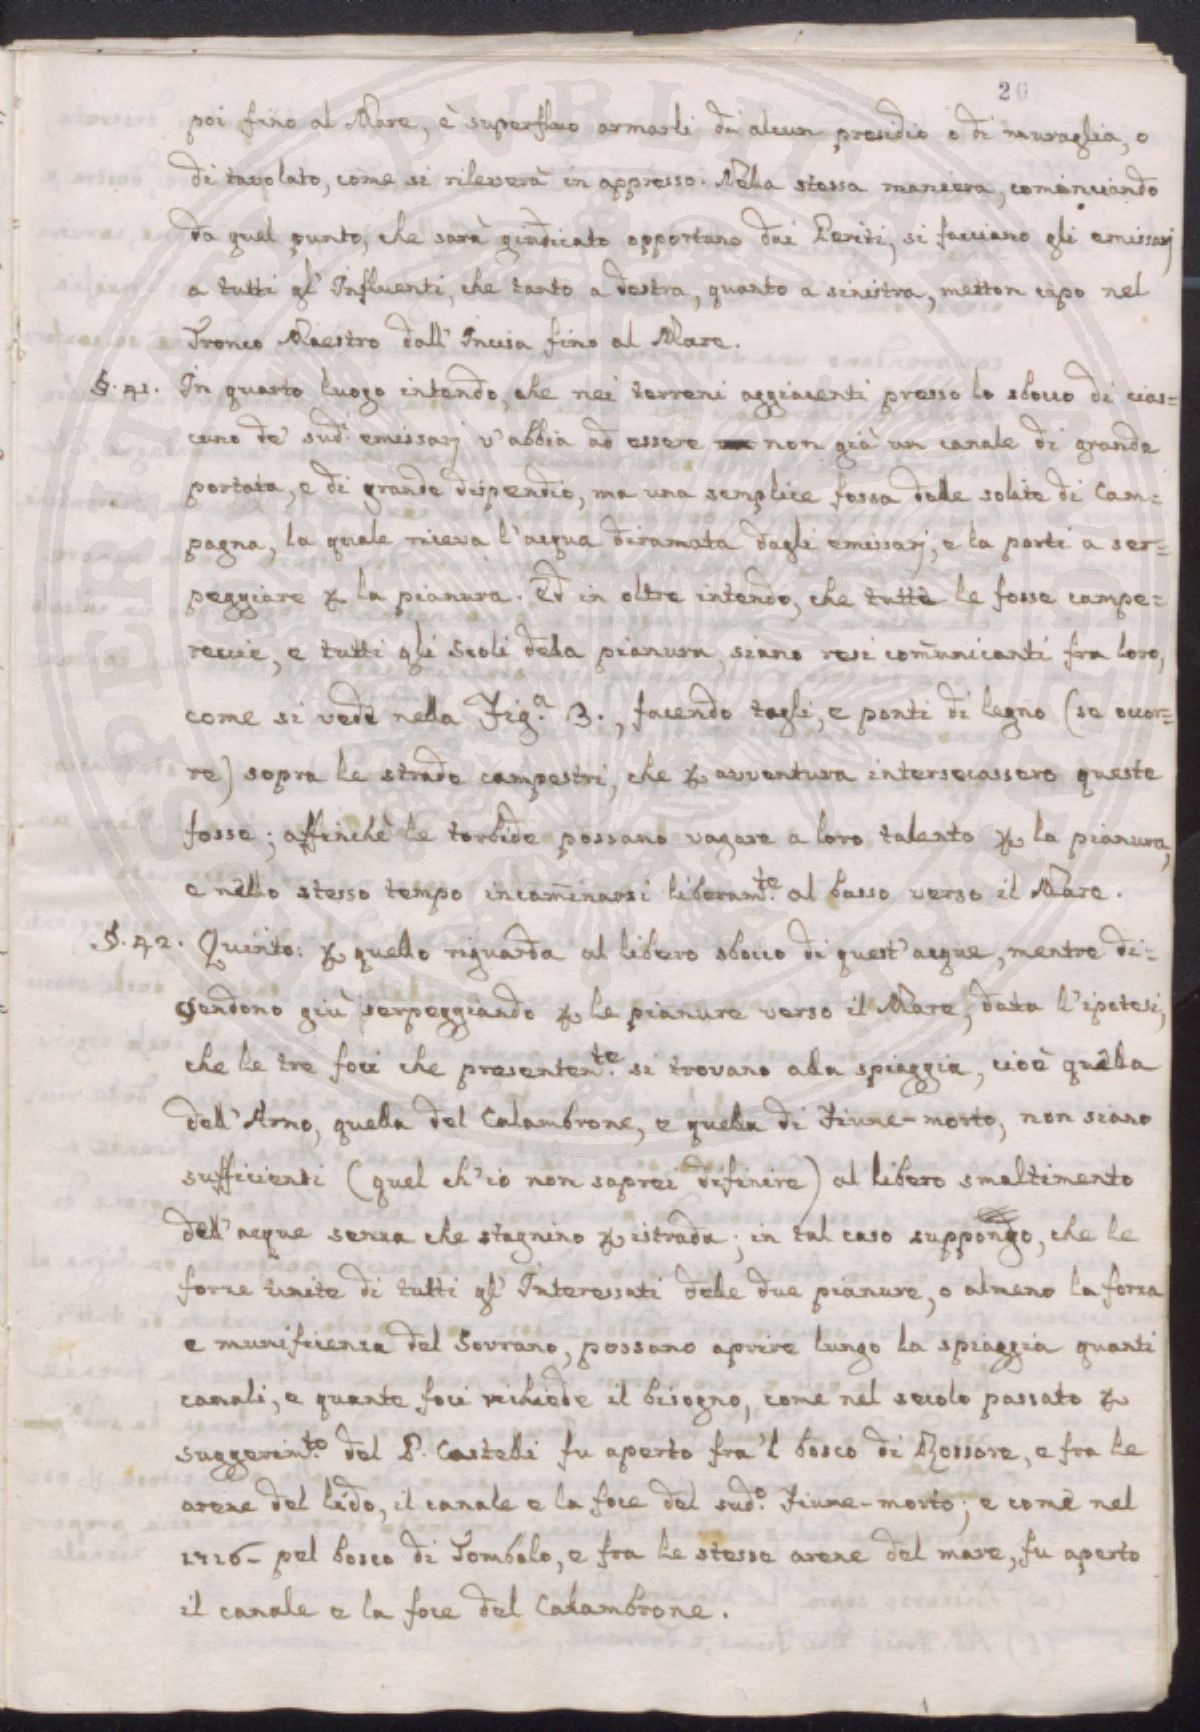 20
poi fino al Mare, è superfluo armarli di alcun presidio o di muraglia, o
di tavolato, come si rileverà in appresso. Nella stessa maniera, cominciando
da quel punto, che sarà giudicato opportuno dai Periti, si facciano gli emissarj
a tutti gl' Influenti, che tanto a destra, quanto a sinistra, metton capo nel
Tronco Maestro dall' Incisa fino al Mare.
§. 41. In quarto luogo intendo, che nei terreni aggiacenti presso lo sbocco di cias=
cuno de' sud.i emissarj v' abbia ad essere non già un canale di grande
portata, e di grande dispendio, ma una semplice fossa delle solite di Cam=
pagna, la quale riceva l' acqua diramata dagli emissarj, e la porti a ser=
peggiare p la pianura. Ed in oltre intendo, che tutte le fosse campe=
reccie, e tutti gli Scoli della pianura, siano resi com̃unicanti fra loro,
come si vede nella Fig.a 3., facendo tagli, e ponti di legno (se occor=
re) sopra le strade campestri, che p avventura intersecassero queste
fosse; affinchè le torbide possano vagare a loro talento p la pianura,
e nello stesso tempo incam̃inarsi liberam.te al basso verso il Mare.
§. 42. Quinto: p quello riguarda al libero sbocco di quest' acque, mentre di=
scendono giù serpeggiando p le pianure verso il Mare, data l' ipotesi,
che le tre foci che presentem.te si trovano alla spiaggia, cioè quella
dell' Arno, quella del Calambrone, e quella di Fiume-morto, non siano
sufficienti (quel ch' io non saprei difinire) al libero smaltimento
dell' acque senza che stagnino p istrada; in tal caso suppongo, che le
forze unite di tutti gl' Interessati delle due pianure, o almeno la forza
e munificenza del Sovrano, possano aprire lungo la spiaggia quanti
canali, e quante foci richiede il bisogno, come nel secolo passato p
suggerim.to del P. Castelli fu aperto fra 'l bosco di Rossore, e fra le
arene del lido, il canale e la foce del sud.o Fiume-morto; e come nel
1716- pel bosco di Tombolo, e fra le stesse arene del mare, fu aperto
il canale e la foce del Calambrone.